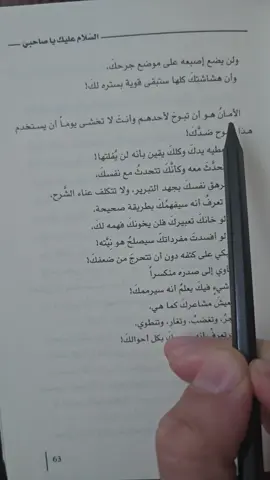 السّلام عليك يا صاحبي
ولن يضع إصبعه على موضع جرحكَ،
وأن هشاشتكَ كلها ستبقى قوية بستره لكَ!
الأمانُ هو أن تبوحَ لأحدهم وأنتَ لا تخشى يوماً أن يستخدم
هذا البوح ضدكَ!
يدكَ وكلكَ يقين بأنه لن يُفلتها!
معه وكأنَّكَ تتحدثُ مع نفسكَ،
نفسكَ بجهد التبرير، ولا تتكلف عناء الشَّرح،
تعرف أنه سيفهمكَ بطريقة صحيحة،
لو خانكَ تعبيركَ فلن يخونكَ فهمه لكَ،
لو أفسدتَ مفرداتكَ سيصلحُ هو نيَّته!
على كتفه دون أن تتحرج من ضعفكَ!
إلى صدره منكسراً
فيكَ يعلمُ أنه سيرممكَ!
مشاعركَ كما هي،
وتغضبُ، وتغار، وتنطوي،
بكل أحوالكَ!
63